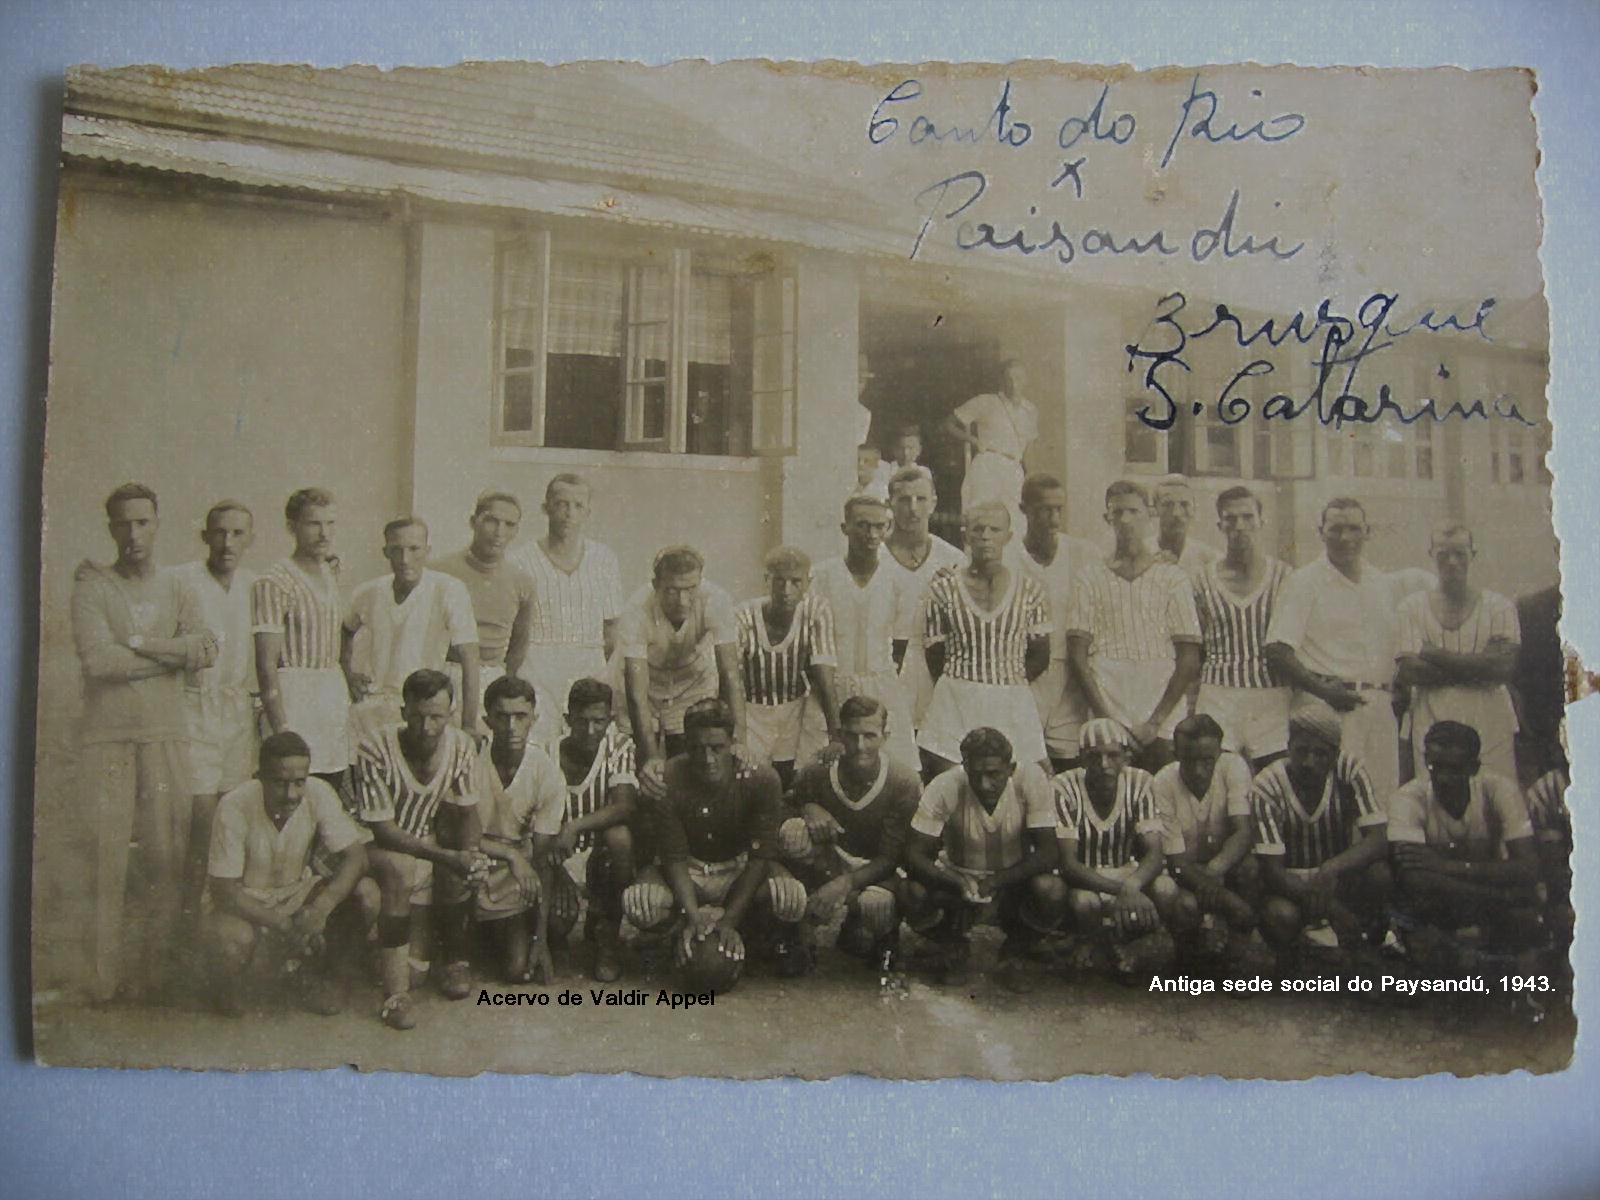 Canto do Rio
x
Paisandu
Brusque
S. Catarina
Acervo de Valdir Appel
Antiga sede social do Paysandú, 1943.